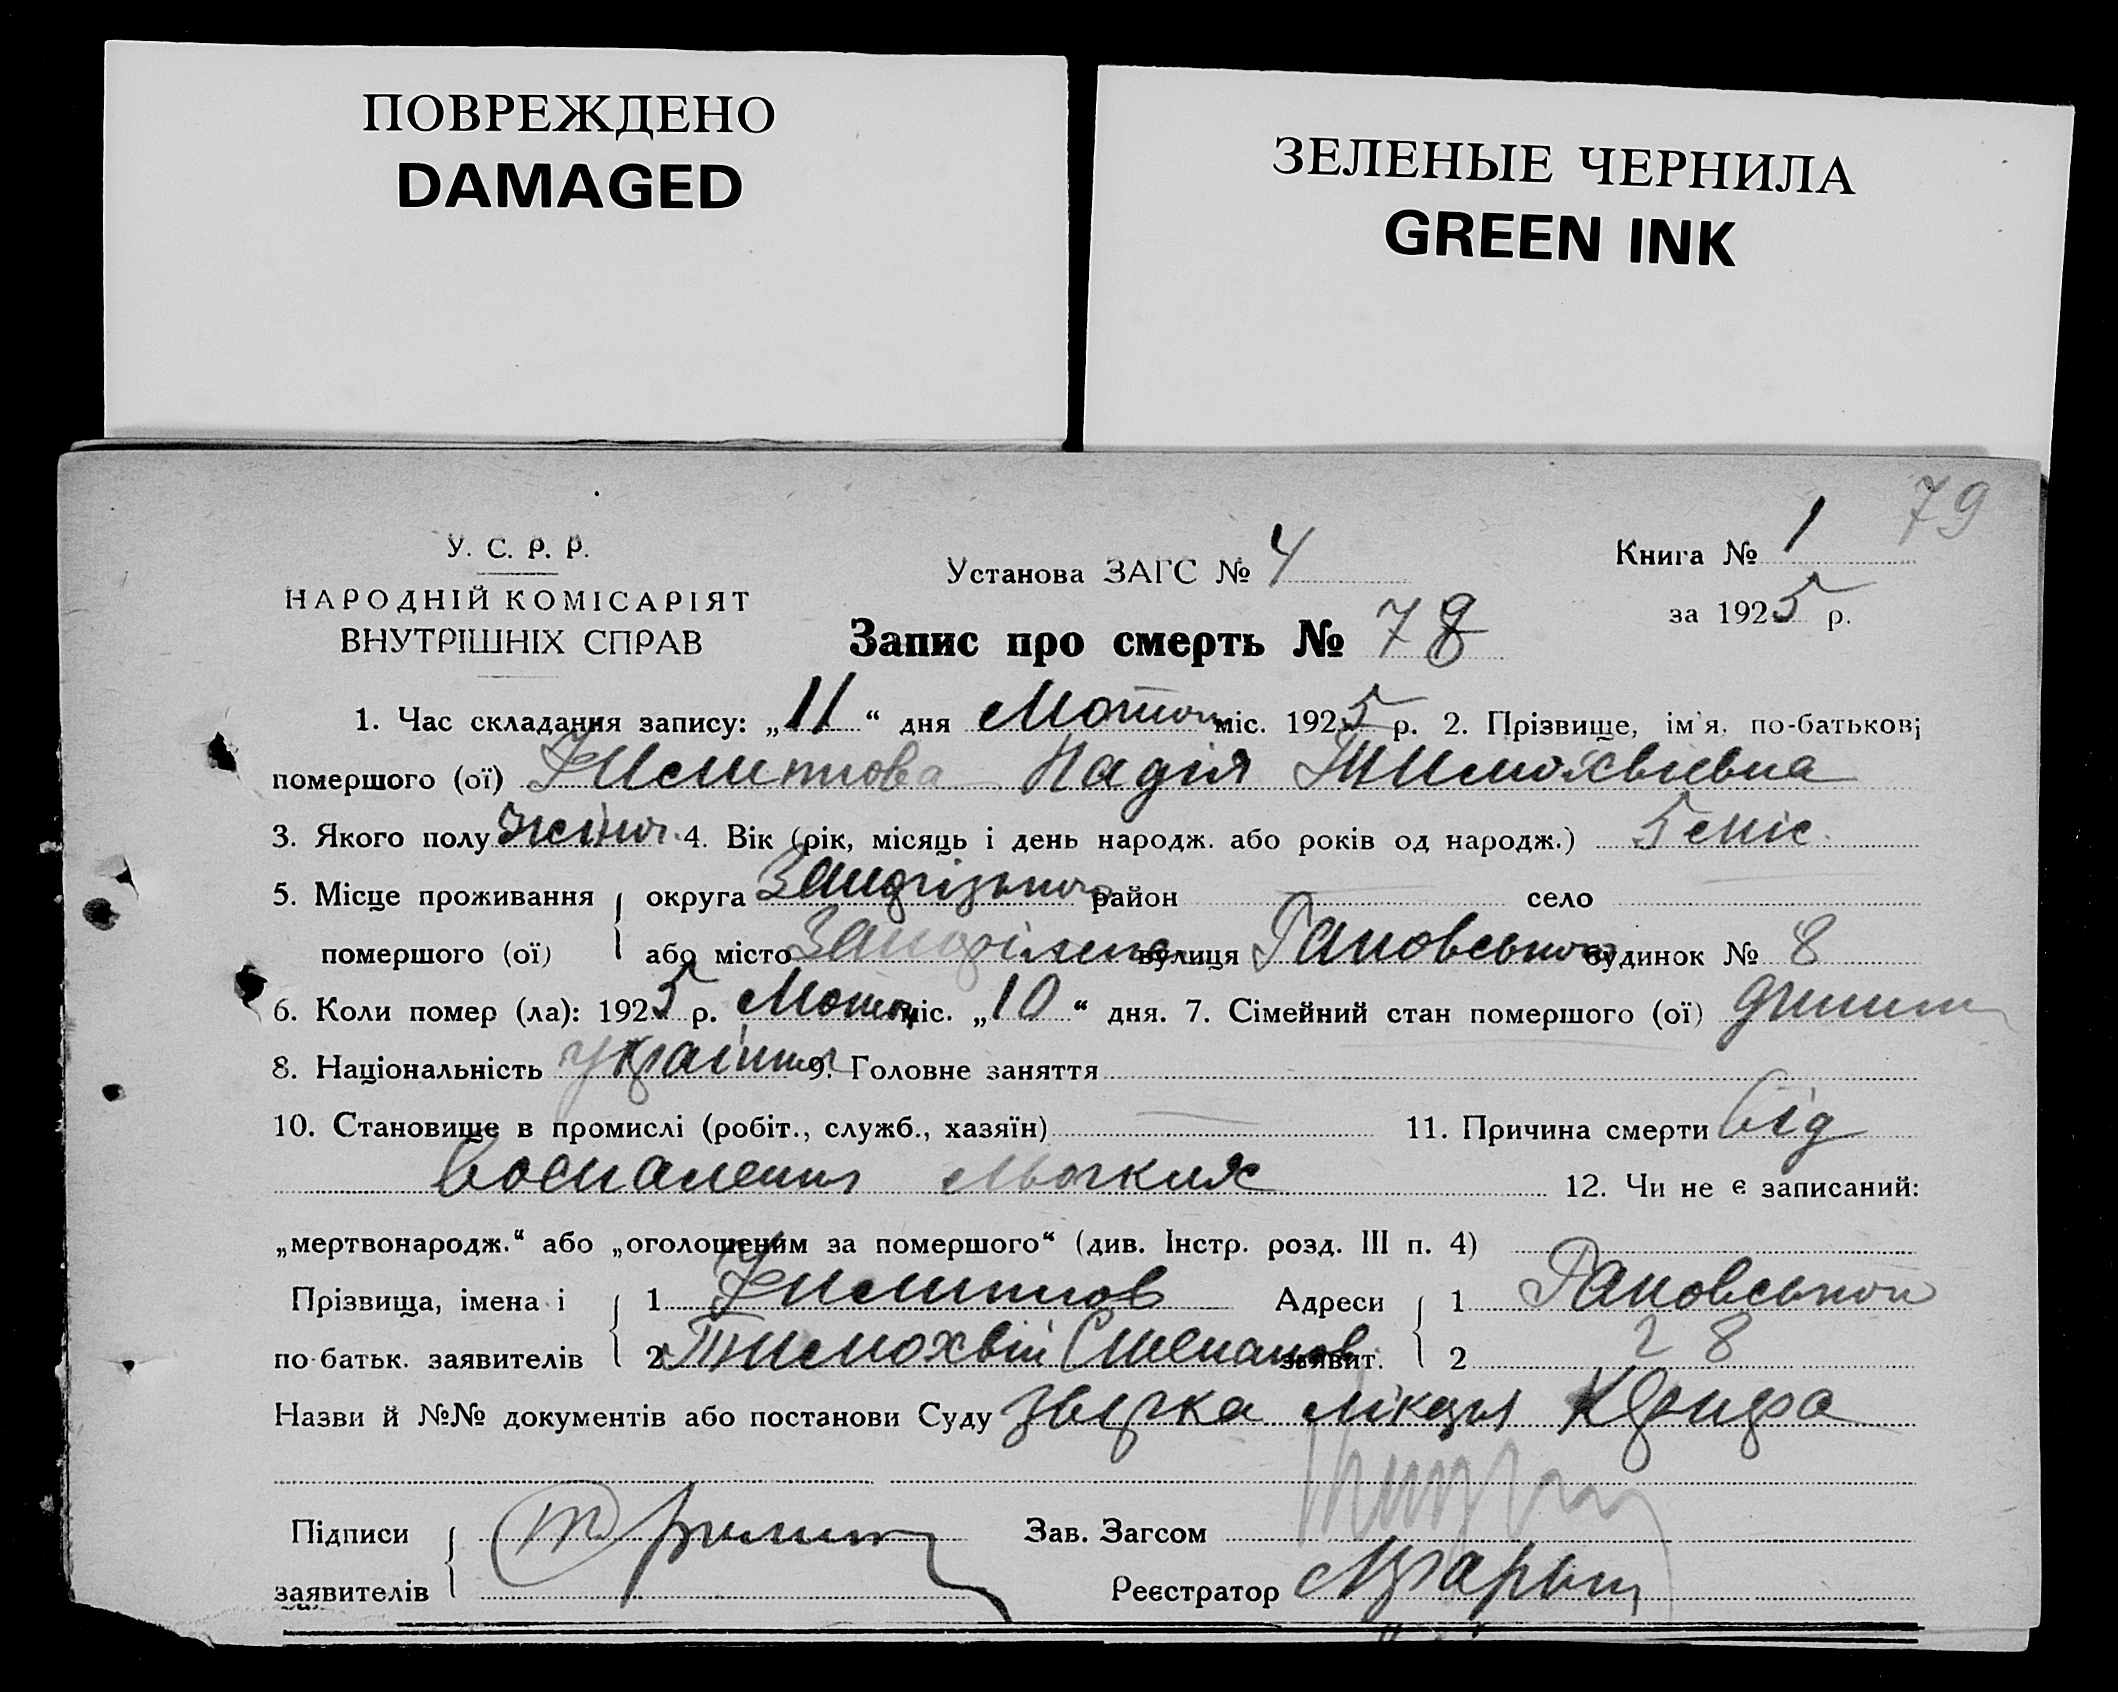 ПОВРЕЖДЕНО
DAMAGED
ЗЕЛЕНЫЕ ЧЕРНИЛА
GREEN INK
79
У. С. Р. Р.
НАРОДНІЙ КОМІСАРІЯТ
ВНУТРІШНІХ СПРАВ
Установа ЗАГС № 4
Книга № 1
за 1925 р.
Запис про смерть № 78
1. Час складання запису: „11“ дня міс. 1925 р. 2. Прізвище, ім'я, по-батькові
помершого (ої) Надія Тимохвіївна
3. Якого полу жіноч. 4. Вік (рік, місяць і день народж. або років од народж.) 5 міс.
5. Місце проживання округа район село
помершого (ої) або місто вулиця будинок № 8
6. Коли помер (ла): 1925 р. міс. „10“ дня. 7. Сімейний стан помершого (ої) дитина
8. Національність 9. Головне заняття
10. Становище в промислі (робіт., служб., хазяїн) 11. Причина смерти від
воспалення льогких 12. Чи не є записаний:
„мертвонародж.“ або „оголошеним за помершого“ (див. Інстр. розд. III п. 4)
Прізвища, імена і 1 Адреси 1
по-батьк. заявителів 2 Тимохвій Степанов заявит. 2 8
Назви й №№ документів або постанови Суду лікаря
Підписи Зав. Загсом
заявителів Реєстратор